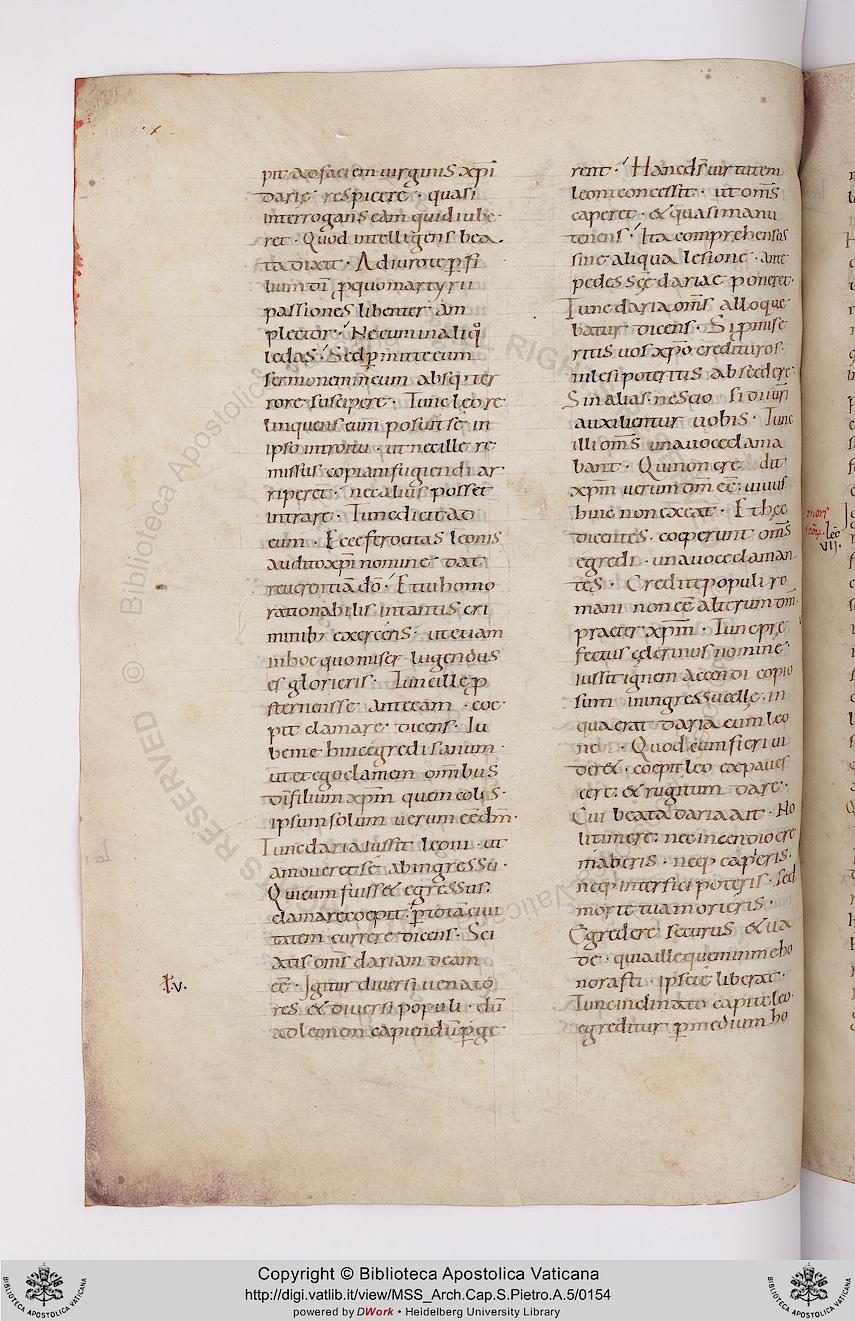 pit ad faciem uirginis xp̄i
dariẹ respicere · quasi
interrogans eam quid iube
ret · Quod intelligens bea
ta dixit · Adiuro te p̱ fi
lium dī p̱ quo martyrii
passiones libenter am
plector · Ne eum in aliq̊
ledas · Sed p̱mitte eum
sermonem meum absq; ter
rore suscipere · Tunc leo re
linquens eum posuit se in
ipso introitu · ut nec ille re
missus copiam fugiendi ar
riperet · nec alius posset
intrare · Tunc dicit ad
eum · Ecce ferocitas leonis
audito xp̄i nomine dat
reuerentiā dō · Et tu homo
rationabilis in tantis cri
minib; exercens · ut etiam
in hoc quo miser lugendus
es glorieris · Tunc ille p̱
sternens se ante eam · coe
pit clamare dicens · Iu
be me hinc egredi sanum ·
ut et ego clamem omnibus
dī filium xp̄m quem colis ·
ipsum solum uerum eē dm̄ ·
Tunc daria iussit leoni · ut
amoueret se ab ingressu ·
Qui cum fuisset egressus ·
clamare coepit · p̱ totā ciui
tatem currere dicens · Sci
atis om̄s dariam deam
eē · Igitur diuersi uenato
res & diuersi populi · dū
ad leonem capiendū p̱ge
rent · Hanc dş uirtutem
leoni concessit · ut om̄s
caperet · & quasi manu
tenens · Ita comprehensos
sine aliqua lesione · ante
pedes sc̄ę dariae poneret ·
Tunc daria om̄s alloque
batur dicens · Si p̱mise
ritis uos xp̄o credituros ·
inlesi poteritis abscedere ·
Sin alias · nescio si dii uri
auxilientur uobis · Tunc
illi om̄s una uoce clama
bant · Qui non cre dit
xp̄m uerum dm̄ eē · uiuus
hinc non exeat · Et hęc
dicentes · coeperunt om̄s
egredi · una uoce claman
tes · Credite populi ro
mani non eē alterum dm̄
praeter xp̄m · Tunc prę
fectus cęlerinus nomine ·
iussit ignem accendi copio
sum in ingressu cellę · in
qua erat daria cum leo
ne · Quod cum fieri ui
deret · coepit leo expaues
cere · & rugitum dare ·
Cui beata daria ait · No
li timere · nec incendio cre
maberis · neq; caperis ·
neq; interfici poteris · Sed
morte tua morieris ·
Egredere securus & ua
de · quia ille quem in me ho
norasti · ipse te liberat ·
Tunc inclinato capite leo
egreditur p̱ medium ho
mors
leō
VIJ ·
·V·
Copyright © Biblioteca Apostolica Vaticana
http://digi.vatlib.it/view/MSS_Arch.Cap.S.Pietro.A.5/0154
powered by DWork • Heidelberg University Library